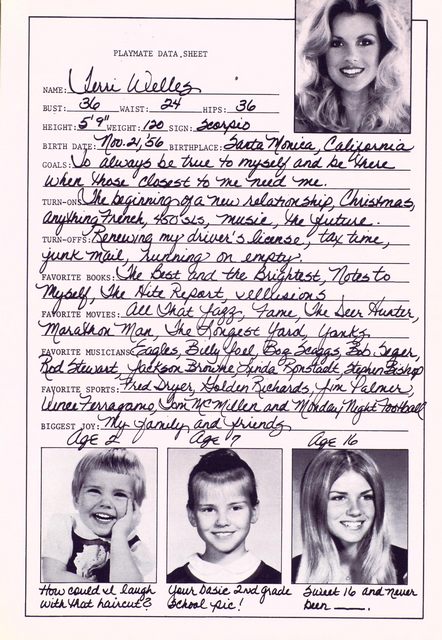 PLAYMATE DATA SHEET
NAME: Terri Welles
BUST: 36 WAIST: 24 HIPS: 36
HEIGHT: 5'9" WEIGHT: 120 SIGN: Scorpio
BIRTH DATE: Nov. 21, '56 BIRTHPLACE: Santa Monica, California
GOALS: To always be true to myself and be there
when those closest to me need me.
TURN-ONS: The beginning of a new relationship, Christmas,
anything French, 450 SLs, music, the future.
TURN-OFFS: Renewing my driver's license, tax time,
junk mail, running on empty.
FAVORITE BOOKS: The Best and the Brightest, Notes to
Myself, The Hite Report, Illusions
FAVORITE MOVIES: All That Jazz, Fame, The Deer Hunter,
Marathon Man, The Longest Yard, Yanks,
FAVORITE MUSICIANS: Eagles, Billy Joel, Boz Scaggs, Bob Seger,
Rod Stewart, Jackson Browne, Linda Ronstadt, Stephen Bishop
FAVORITE SPORTS: Fred Dryer, Golden Richards, Jim Palmer,
Vince Ferragamo, Tom McMillen and Monday Night Football
BIGGEST JOY: My family and friends
AGE 2 AGE 7 AGE 16
How could I laugh
with that haircut?
Your basic 2nd grade
school pic!
Sweet 16 and never
been ____.